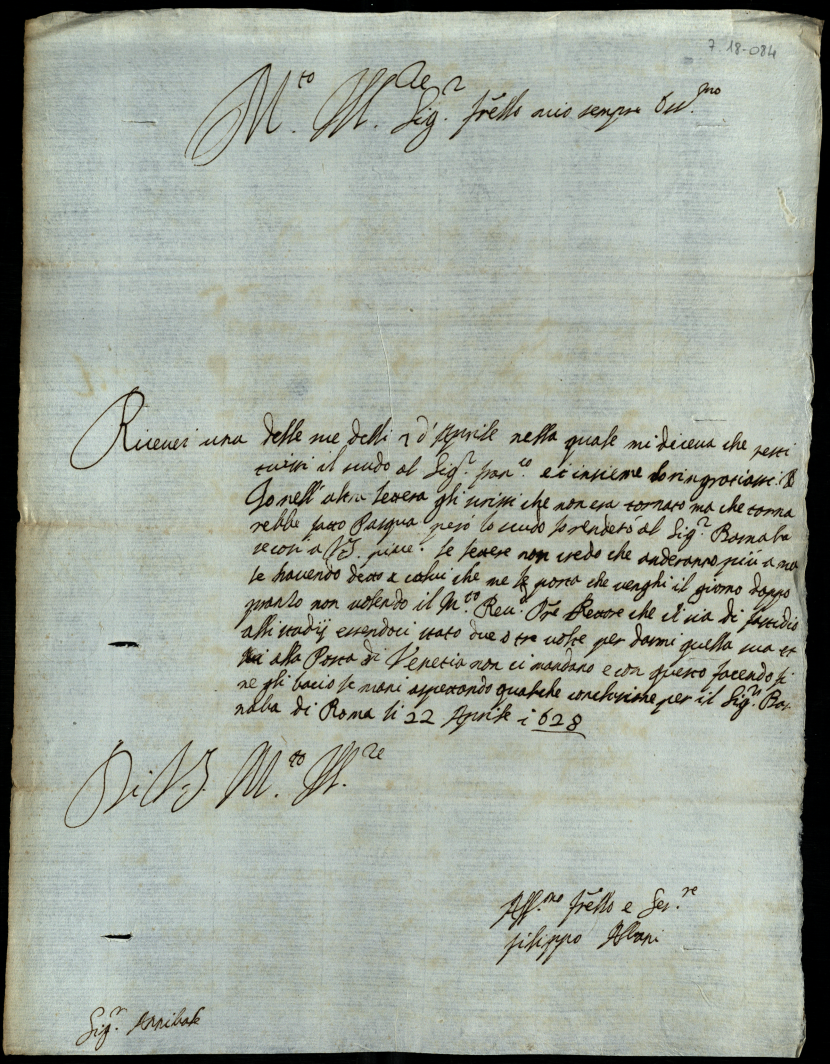 7.18-084
M.to Ill.re Sig.r fr̃ello mio sempre oss.mo
Riceuei una delle sue delli 7 d'Aprile nella quale mi diceua che resti
tuissi il scudo al Sig.r fran.co e ci insieme lo ringratiassi.
Io nell'altra lettera gli scrissi che non era tornato ma che torna
rebbe fatto Pasqua però lo scudo lo renderò al Sig.r Barnaba
secon a V.S. piace. le lettere non credo che anderanno più a ma
le hauendo detto a colui che me le porta che venghi il giorno doppo
pranzo non volendo il M.to Reu. Pre Rettore che ci sia di fastidio
alli studij essendoci stato due o tre volte per darmi quella sua et
alla Posta di Venetia non ci mandano e con questo facendo fi
ne gli bacio le mani aspettando qualche conclusione per il Sig.r Bar
naba di Roma li 22 Aprile i628
Di V.S. M.to Ill.re
Aff.mo fr̃ello e Ser.re
filippo Albani
Sig.r Annibale